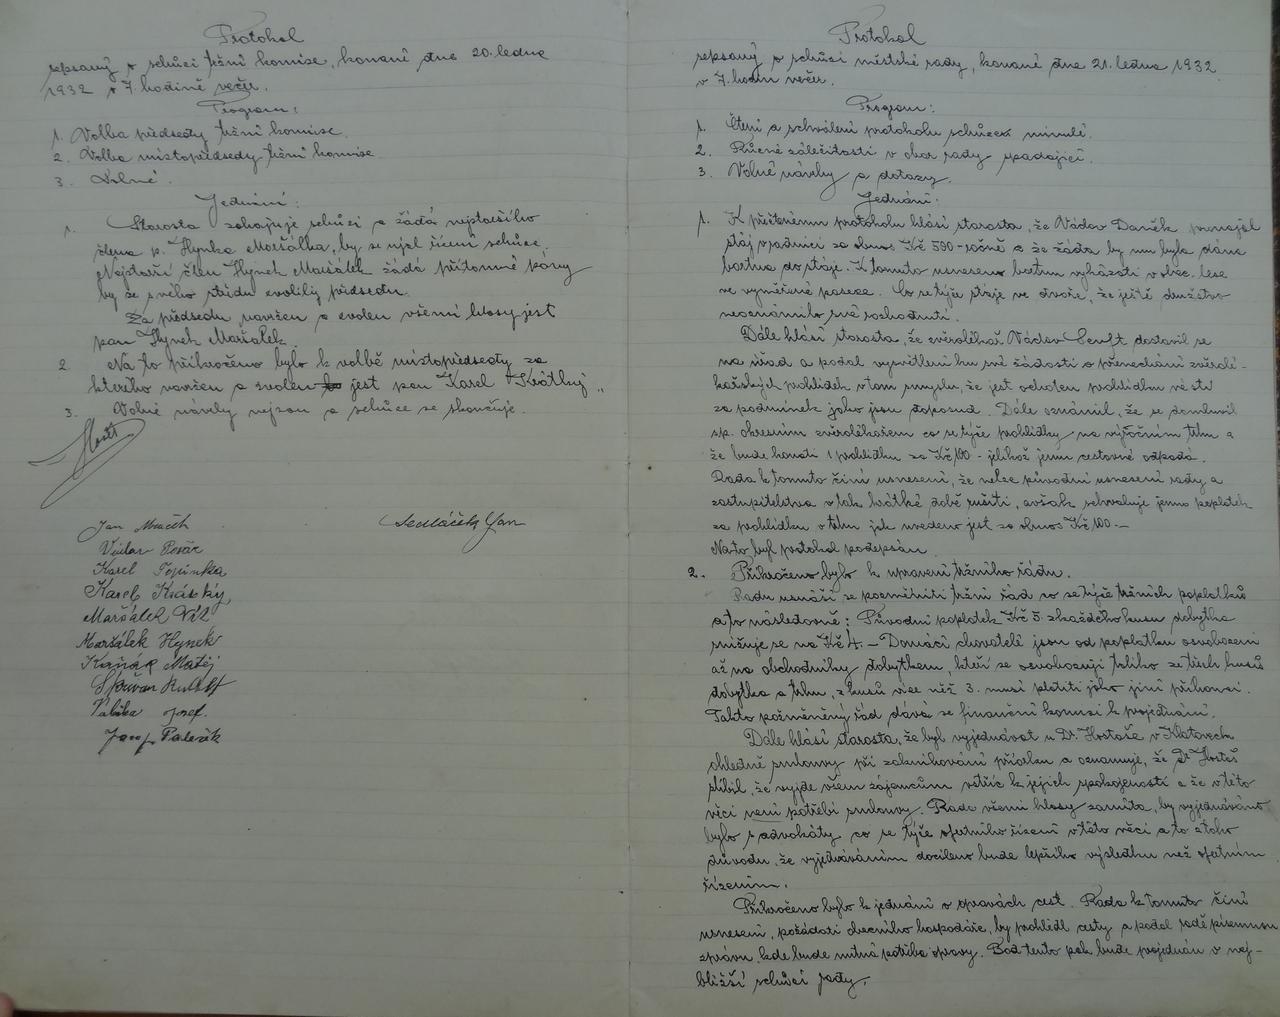 Protokol
sepsaný o schůzi tržní komise, konané dne 20. ledna
1932 v 7. hodině večer.
Program:
1. Volba předsedy tržní komise.
2. Volba místopředsedy tržní komise.
3. Volné.
Jednání:
1. Starosta zahajuje schůzi a žádá nejstaršího
člena p. Hynka Maršálka, by se ujal řízení schůze.
Nejstarší člen Hynek Maršálek žádá přítomné pány
by ze svého středu zvolili předsedu.
Za předsedu navržen a zvolen všemi hlasy jest
pan Hynek Maršálek.
2. Na to přikročeno bylo k volbě místopředsedy za
kterého navržen a zvolen jest pan Karel Krátký
3. Volné návrhy nejsou a schůze se skončuje.
Jan
Sedláček Jan
Václav
Karel Topinka
Karel Krátký
Maršálek
Maršálek Hynek
Matěj
Rudolf
Josef
Josef
Protokol
sepsaný o schůzi městské rady, konané dne 21. ledna 1932
v 7. hodin večer.
Program:
1. Čtení a schválení protokolu schůze minulé.
2. Různé záležitosti v obor rady spadající.
3. Volné návrhy a dotazy.
Jednání:
1. K přečtenému protokolu hlásí starosta, že Václav Daněk pronajal
stáj v radnici za obnos Kč 590- ročně a že žádá by mu byla dána
do stáje. K tomuto usneseno vykázati v obec. lese
ve vyměřené pasece. Co se týče stáje ve dvoře, že ještě družstvo
neoznámilo své rozhodnutí.
Dále hlásí starosta, že zvěrolékař Václav dostavil se
na úřad a podal vysvětlení ku své žádosti o přenechání zvěrolé-
kařských prohlídek v tom smyslu, že jest ochoten prohlídku vésti
za podmínek jako jsou doposud. Dále oznámil, že se domluvil
sp. okresním zvěrolékařem co se týče prohlídky na výročním trhu a
že bude konati 1 prohlídku za Kč 100- jelikož jemu cestovné odpadá.
Rada k tomuto činí usnesení, že nelze původní usnesení rady a
zastupitelstva v tak krátké době rušiti, avšak schvaluje jemu poplatek
za prohlídku v trhu jak uvedeno jest za obnos Kč 100.-
Na to byl protokol podepsán.
2. Přikročeno bylo k upravení tržního řádu.
Radu usnáší se pozměniti tržní řád co se týče tržních poplatků
a to následovně: Původní poplatek Kč 5 z každého kusu dobytka
snižuje se na Kč 4.- Domácí chovatelé jsou od poplatku osvobozeni
až na obchodníky dobytkem, kteří se osvobozují toliko ze třech kusů
dobytka a trhu, z kusů více než 3. musí platiti jako jiní příchozí.
Takto pozměněný řád dává se finanční komisi k projednání.
Dále hlásí starosta, že byl vyjednávat u Dr. Hostaše v Klatovech
ohledně smlouvy při zaknihování přídělu a oznamuje, že Dr Hostaš
slíbil, že vyjde všem zájemcům vstříc k jejich spokojenosti a že v této
věci není potřebí smlouvy. Rada všemi hlasy zamítá, by vyjednáváno
bylo s advokáty co se týče ofertního řízení v této věci a to z toho
důvodu, že vyjednáváním docíleno bude lepšího výsledku než ofertním
řízením.
Přikročeno bylo k jednání o opravách cest. Rada k tomuto činí
usnesení, požádati obecního hospodáře, by prohlédl cesty a podal radě písemnou
zprávu, kde bude nutná potřeba opravy. Bod tento pak bude projednán v nej-
bližší schůzi rady.